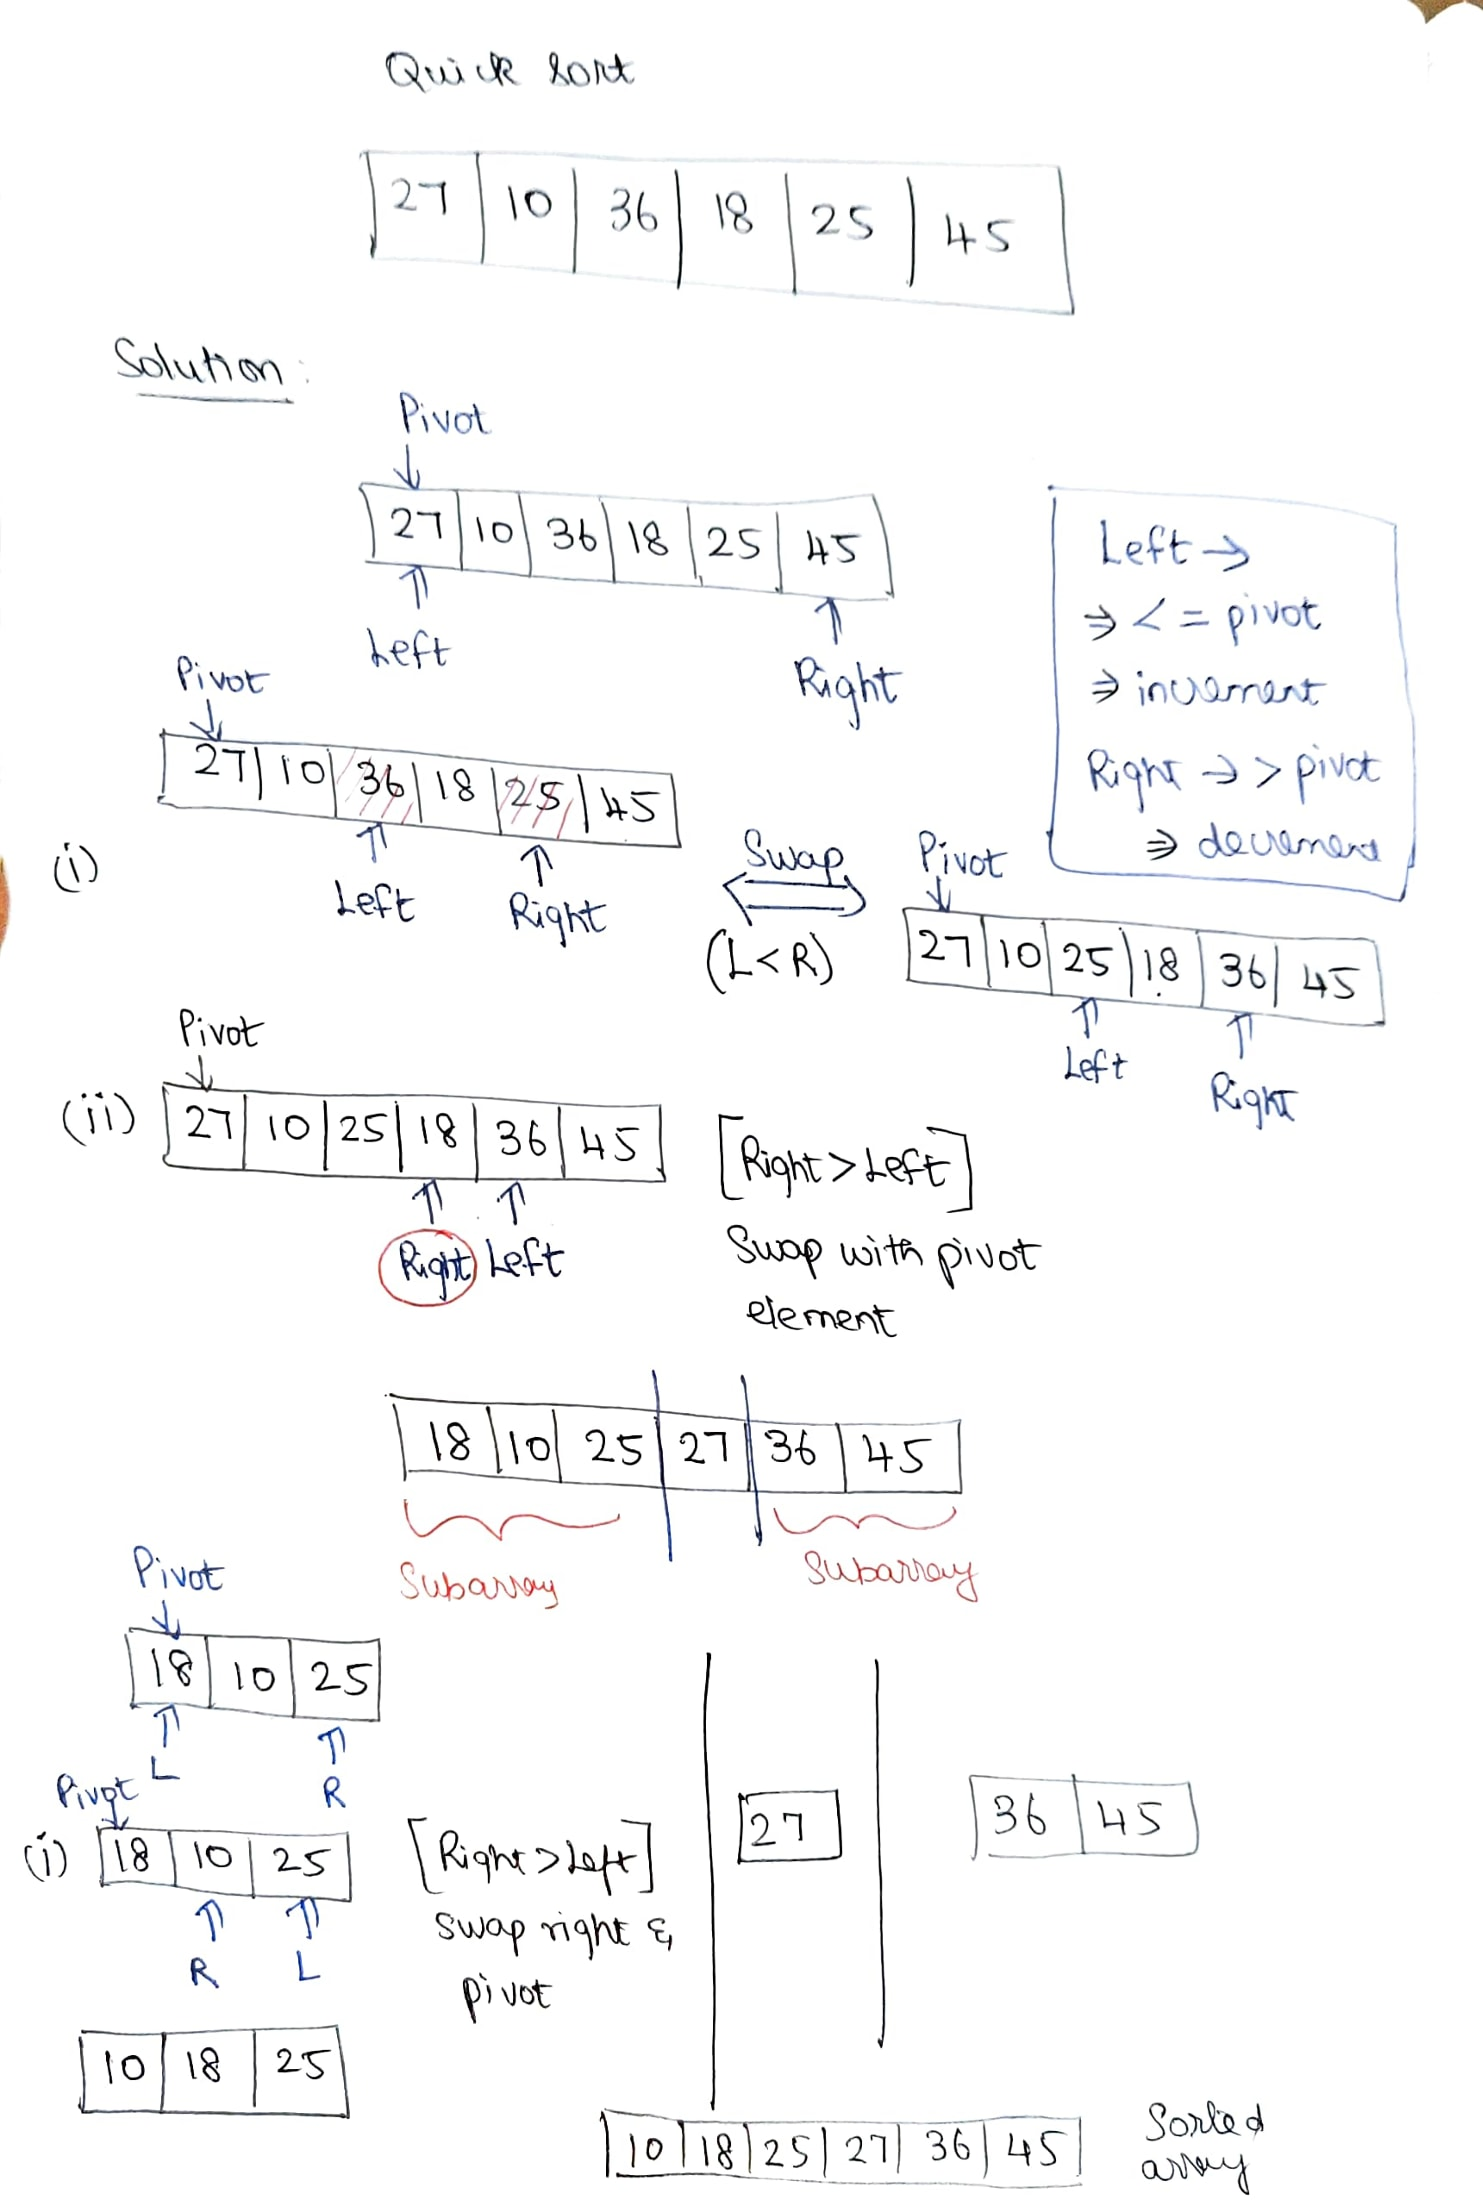 Quick Sort
27 10 36 18 25 45
Solution:
Pivot
27 10 36 18 25 45
Left
Right
Left →
⇒ <= pivot
⇒ increment
Right → > pivot
⇒ decrement
Pivot
27 10 36 18 25 45
(i)
Left Right
Swap
(L<R)
Pivot
27 10 25 18 36 45
Left
Right
Pivot
(ii) 27 10 25 18 36 45
Right Left
[Right > Left]
Swap with pivot
element
18 10 25 27 36 45
Subarray Subarray
Pivot
18 10 25
L
R
Pivot
(i) 18 10 25
R L
[Right > Left]
swap right &
pivot
10 18 25
27
36 45
10 18 25 27 36 45
Sorted
array